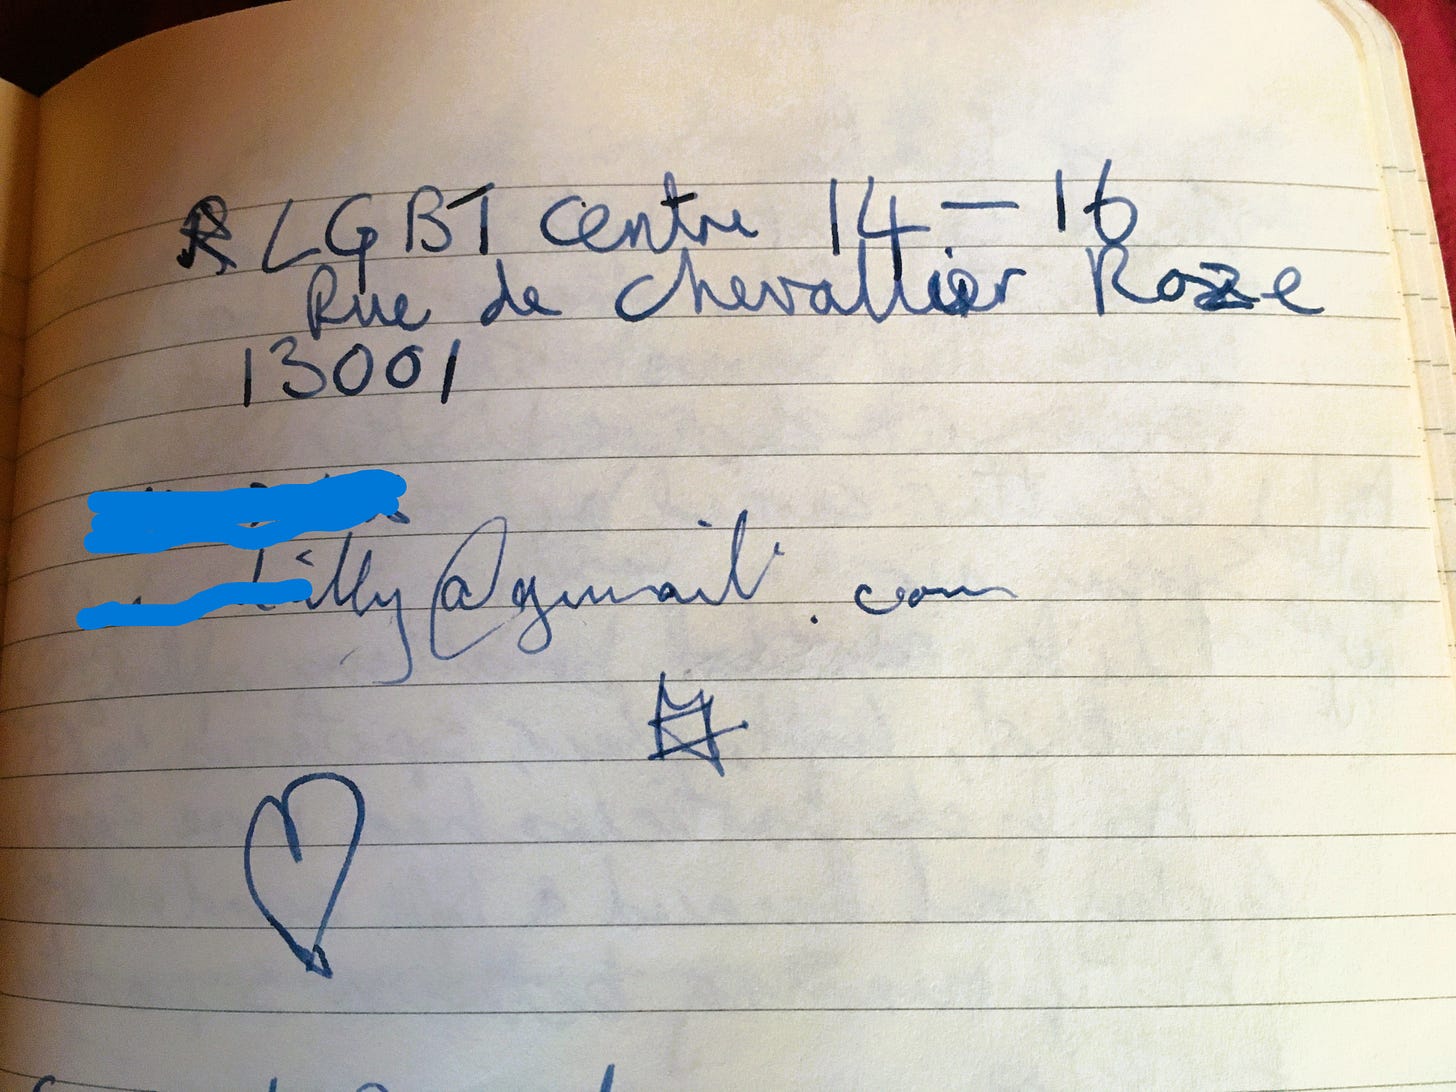 LGBT Centre 14-16
Rue de Chevallier Roze
13001
illy@gmail.com